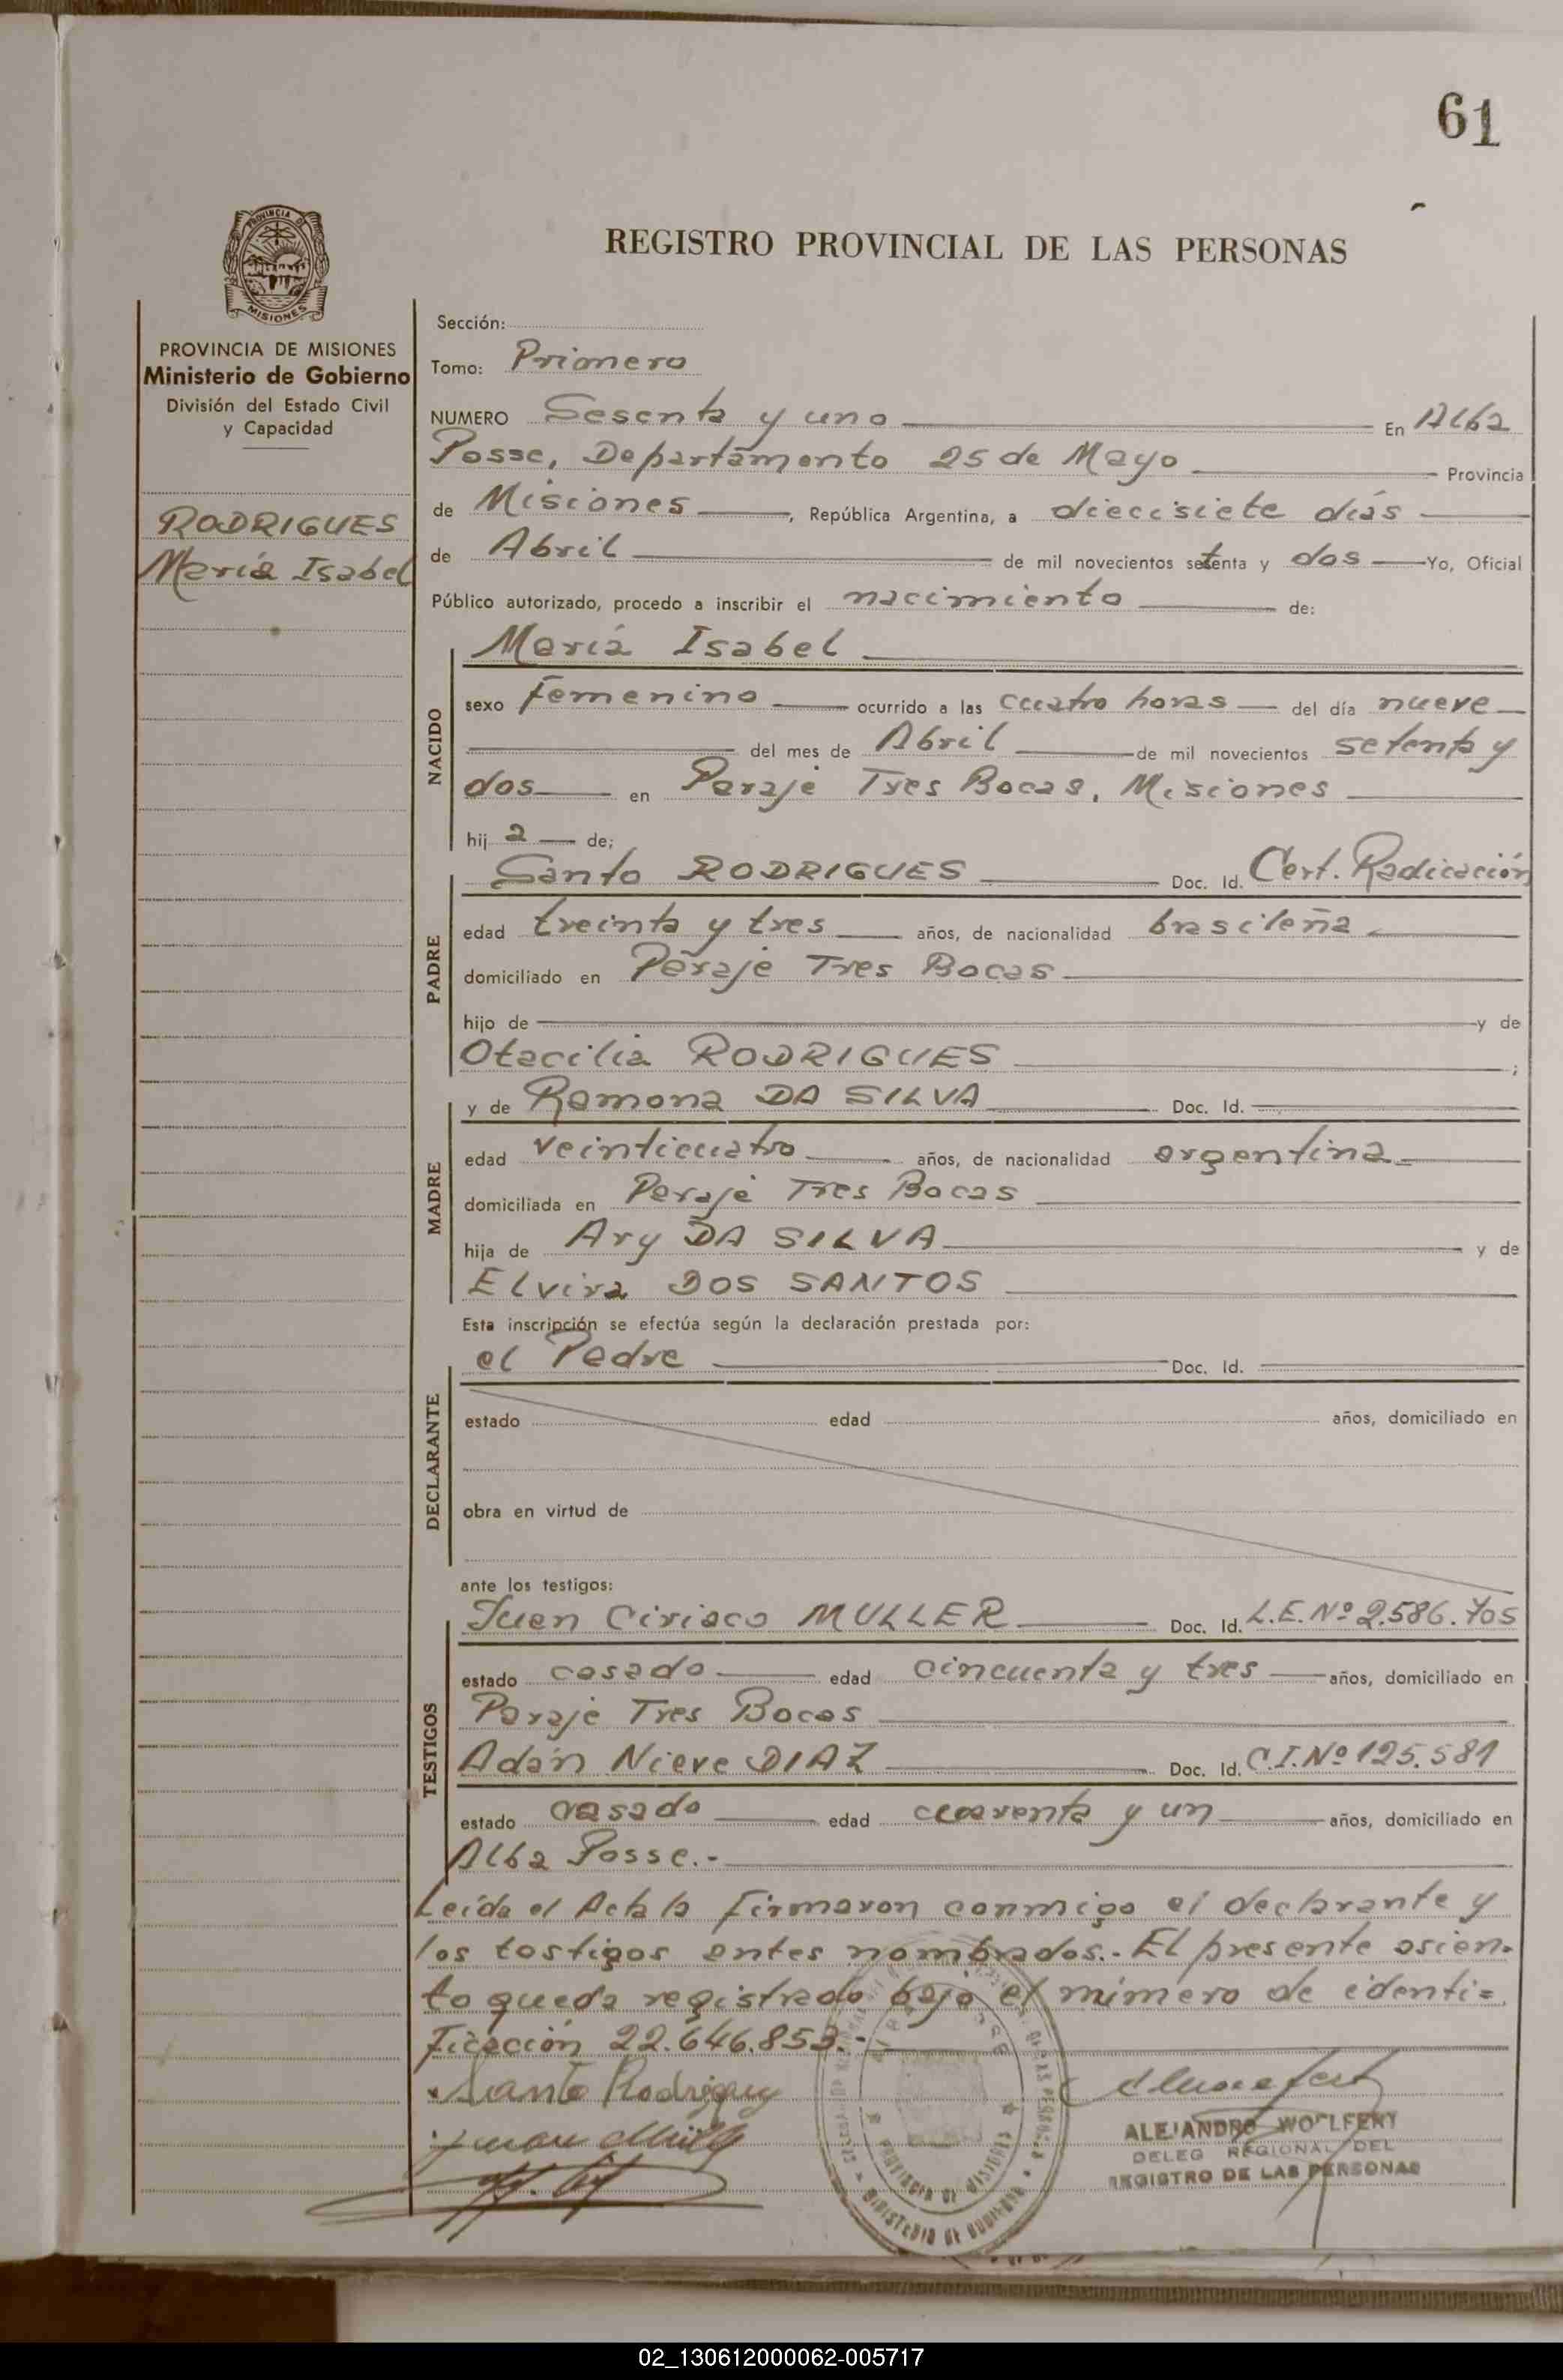 61
PROVINCIA DE
MISIONES
REGISTRO PROVINCIAL DE LAS PERSONAS
PROVINCIA DE MISIONES
Ministerio de Gobierno
División del Estado Civil
y Capacidad
RODRIGUES
María Isabel
Sección:
Tomo: Primero
NUMERO Sesenta y uno En Alba
Posse, Departamento 25 de Mayo Provincia
de Misiones, República Argentina, a diecisiete días
de Abril de mil novecientos setenta y dos Yo, Oficial
Público autorizado, procedo a inscribir el nacimiento de:
NACIDO
María Isabel
sexo Femenino ocurrido a las cuatro horas del día nueve
del mes de Abril de mil novecientos setenta y
dos en Paraje Tres Bocas, Misiones
hij a de;
PADRE
Santo RODRIGUES Doc. Id. Cert. Radicación
edad treinta y tres años, de nacionalidad brasileña
domiciliado en Paraje Tres Bocas
hijo de y de
Otacilia RODRIGUES ;
MADRE
y de Ramona DA SILVA Doc. Id.
edad veinticuatro años, de nacionalidad argentina
domiciliada en Paraje Tres Bocas
hija de Ary DA SILVA y de
Elvira DOS SANTOS
Esta inscripción se efectúa según la declaración prestada por:
DECLARANTE
el Padre Doc. Id.
estado edad años, domiciliado en
obra en virtud de
ante los testigos:
TESTIGOS
Juan Ciriaco MULLER Doc. Id. L.E. Nº 2.586.705
estado casado edad cincuenta y tres años, domiciliado en
Paraje Tres Bocas
Adán Nieve DIAZ Doc. Id. C.I. Nº 125.581
estado casado edad cuarenta y un años, domiciliado en
Alba Posse.-
Leída el Acta la firmaron conmigo el declarante y
los testigos antes nombrados.- El presente asien-
to queda registrado bajo el número de identi=
ficación 22.646.853.-
Santo Rodrigues
Juan Müller
ALEJANDRO WOLFERT
DELEG REGIONAL DEL
REGISTRO DE LAS PERSONAS
PROVINCIA DE MISIONES
MINISTERIO DE GOBIERNO
02_130612000062-005717